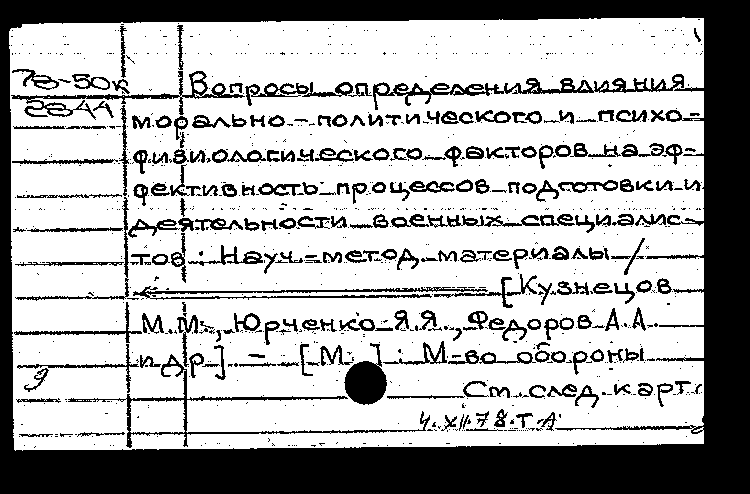 78-50к Вопросы определения влияния
2844 морально-политического и психо-
физиологического факторов на эф-
фективность процессов подготовки и
деятельности военных специалис-
тов : Науч.-метод. материалы /
[Кузнецов
М.М., Юрченко Я.Я., Федоров А.А.
и др.] – [М.] : М-во обороны
9
См. след. карт.
4.XII.78.Т.А.